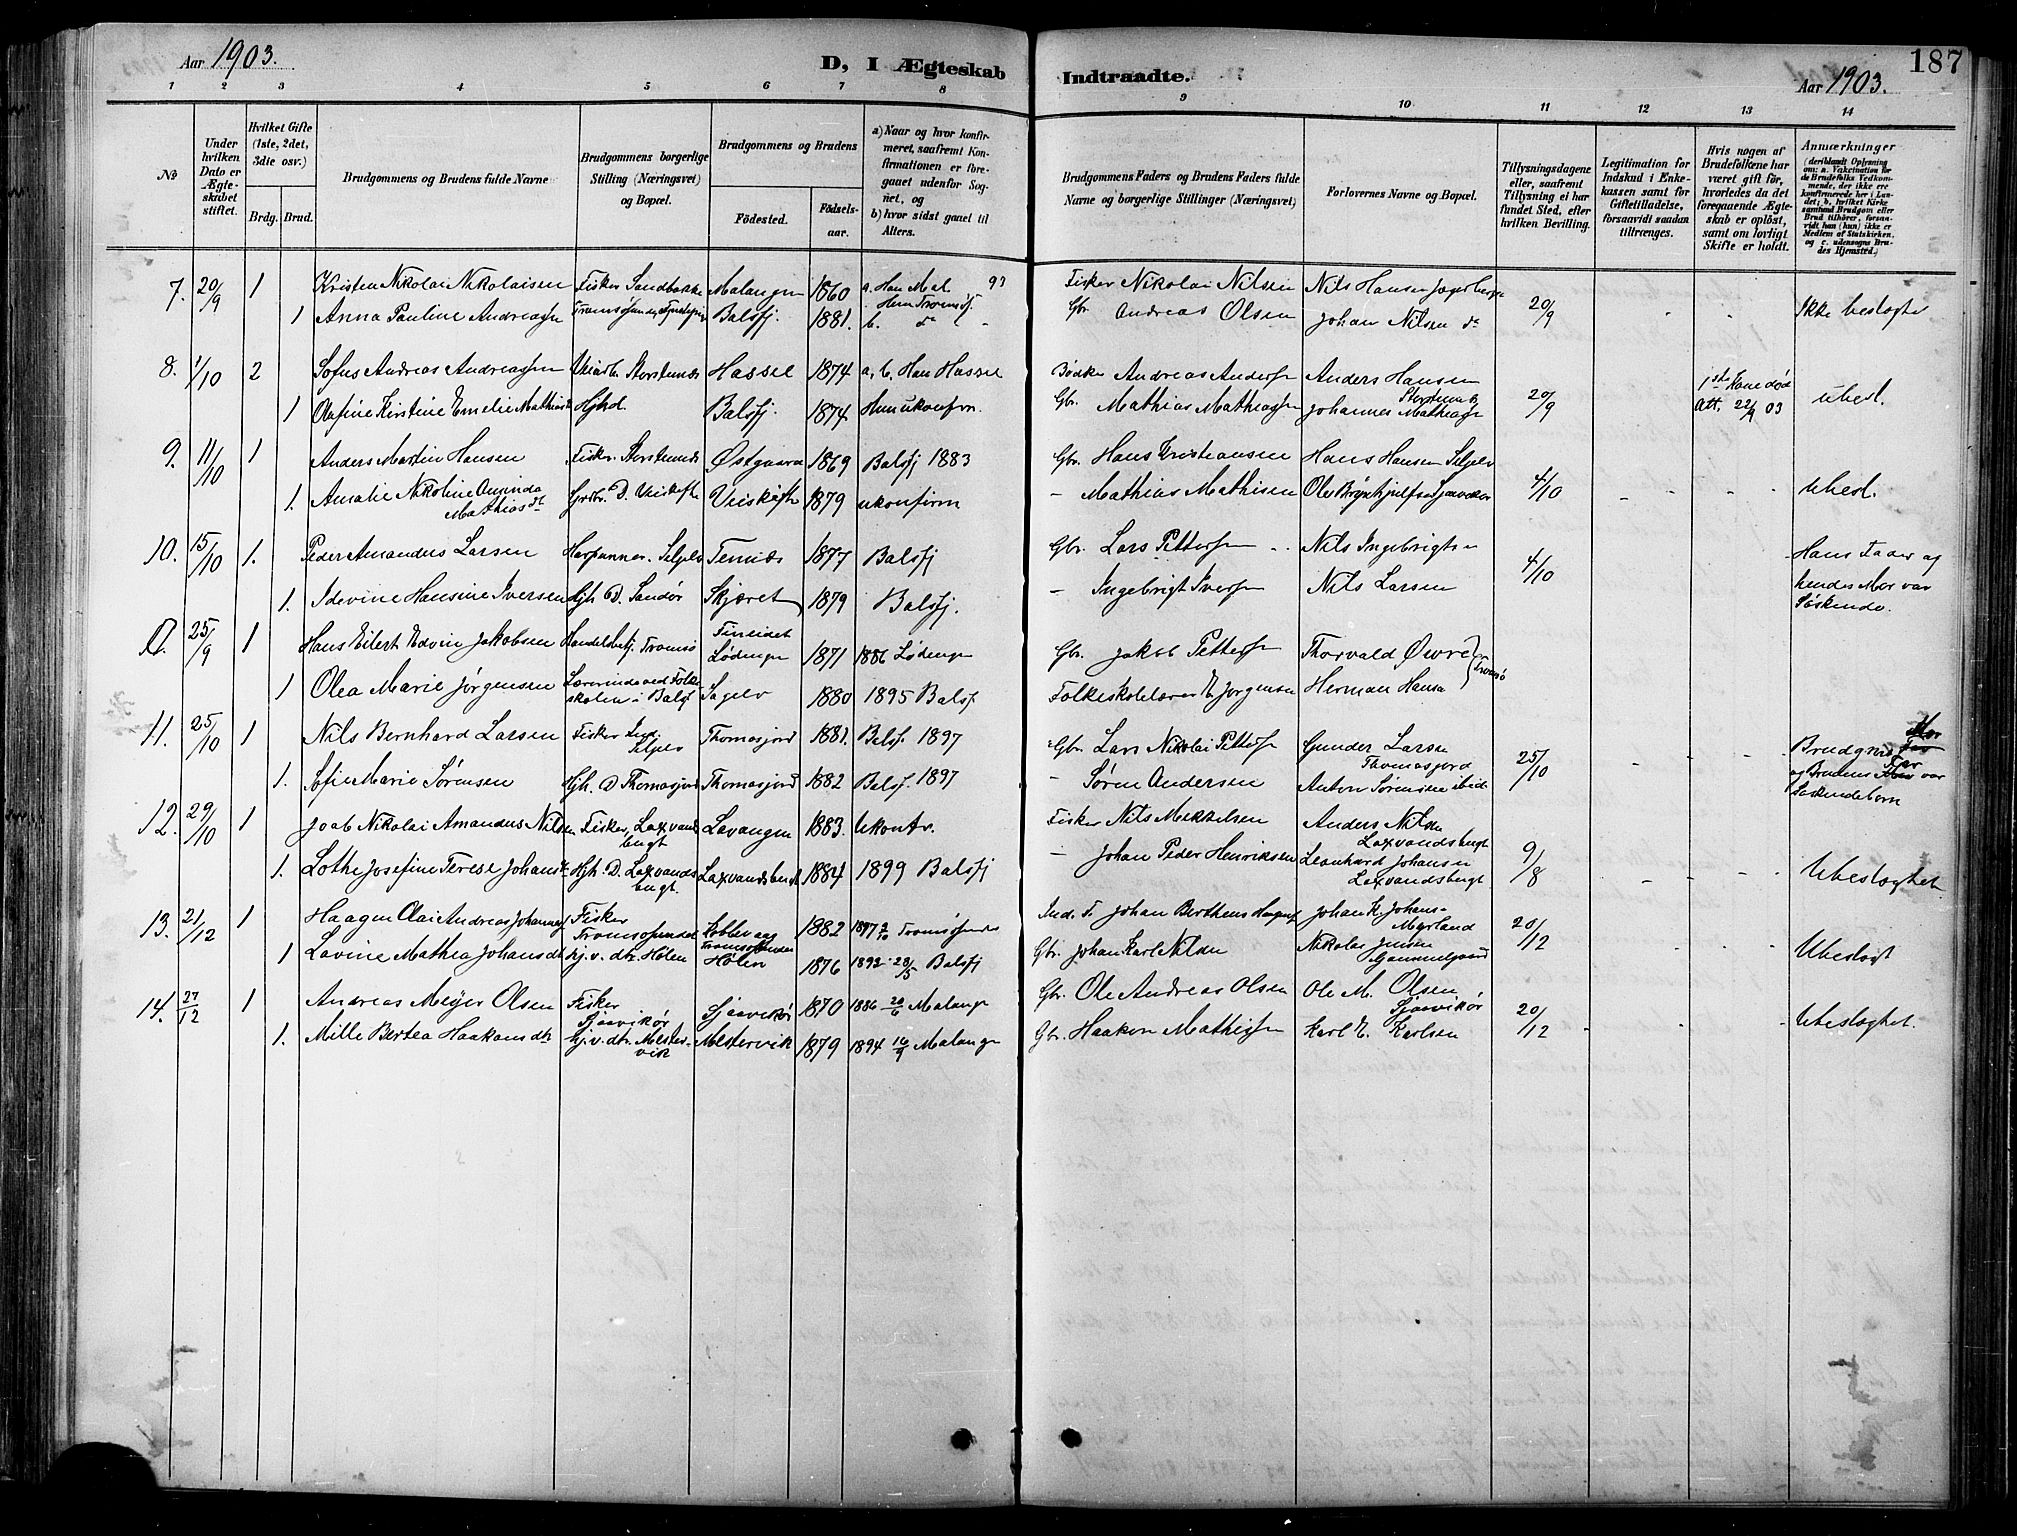 Aar 1903.
D, I Ægteskab
Indtraadte.
187
Aar 1903.
1 2 3 4 5 6 7 8 9 10 11 12 13 14
No
Under hvilken Dato er Ægteskabet stiftet.
Hvilket Gifte (1ste, 2det, 3die osv.)
Brdg. Brud.
Brudgommens og Brudens fulde Navne
Brudgommens borgerlige Stilling (Næringsvei) og Bopæl.
Brudgommens og Brudens
Fødested.
Fødselsaar.
a) Naar og hvor konfirmeret, saafremt Konfirmationen er foregaaet udenfor Sognet, og
b) hvor sidst gaaet til Alters.
Brudgommens Faders og Brudens Faders fulde Navne og borgerlige Stillinger (Næringsvei)
Forlovernes Navne og Bopæl.
Tillysningsdagene eller, saafremt Tillysning ei har fundet Sted, efter hvilken Bevilling.
Legitimation for Indskud i Enkekassen samt for Giftetilladelse, forsaavidt saadan tiltrænges.
Hvis nogen af Brudefolkene har været gift før, hvorledes da det foregaaende Ægteskab er opløst, samt om lovligt Skifte er holdt.
Anmærkninger
(deriblandt Oplysning om: a. Vakcination for de Brudefolks Vedkommende, der ikke ere konfirmerede her i Landet; b. hvilket Kirkesamfund Brudgom eller Brud tilhører, forsaavidt han (hun) ikke er Medlem af Statskirken, og c. udensogns Brudes Hjemsted.)
7. 20/9 1 Kristen Nikolai Nikolaisen Fisker Sandbakke Malangen 1860 a. Han Mal. 93 Fisker Nikolai Nilsen Nils Hansen 20/9 Ikke beslægte
1 Anna Pauline Andreasen Balsfj. 1881. Hun Tromsøs. b. do Gbr. Andreas Olsen Johan Nilsen do
8. 1/10 2 Sofus Andreas Andreasen Storstennes Hassel 1874 a, b. Han Hassel Bødker Andreas Anders Anders Hansen Storstennes 20/9 1ste Kone død Att. 22/9 03 ubesl.
1 Oufine Kirstine Emelie Mathias Hjhd. Balsfj. 1874 Hun ukonfirm. Gbr. Mathias Mathiasen Johannes Mathiasen
9. 11/10 1 Anders Martin Hansen Fisker. Storstennes Østgaard 1869 Balsfj 1883 Gbr. Hans Kristiansen Hans Hansen Seljelv 4/10 Ubesl.
1. Amalie Nikoline Aminda Mathiasdt. Grdbr. D. 1879 ukonfirm - Mathias Mathisen Ole
10. 15/10 1. Peder Amandus Larsen Seljelv Tennes 1877 Balsfj Gbr. Lars Petters Nils Ingebrigts 4/10 Hans Fader og hendes Mor var Søskende.
1. Idevine Hansine Iversen Hjh. D. Sandør Skjæret 1879 Balsfj. - Ingebrigt Ivers Nils Larsen
25/9 1 Hans Eilert Edvin Jakobsen Handelsbetj. Tromsø Fineidet Lødingen 1871 1886 Lødingen Gbr. Jakob Petters Thorvald Øwre Tromsø
1 Olea Marie Jørgensen Lærerinde ved Folkeskolen i Balsf Sagelv 1880 1895 Balsf. Folkeskolelærer E. Jørgensen Herman Hansa
11. 25/10 1 Nils Bernhard Larsen Fisker Ind. Seljelv Thomasjord 1881. Balsf. 1897 Gbr. Lars Nikolai Petters Gunder Larsen Thomasjord 25/10 Brudgms Mor og Brudens Far var Søskendebørn
1. Sofie Marie Sørensen Hjh. D Thomasjord Thomasjord 1882 Balsf. 1897 - Søren Andersen Anton Sørensen ibid
12. 29/10 1 Joab Nikolai Amandus Nilsen Fisker, Laxvandsbugt Lavangen 1883. Ukonf. Fisker Nils Mikkelsen Anders Nilsen Laxvandsbugt 9/8 Ubeslægtet
1. Lothe Josefine Terese Johans Hjh. D. Laxvandsbugt Laxvandsbugt 1884 1899 Balsfj - Johan Peder Henriksen Leonhard Johansen Laxvandsbugt
13. 21/12 1 Haagen Olai Andreas Johannes Fisker Tromsøsundet Kobbevaag Tromsøsundet 1882 1897 Tromsøsundet Ind. F. Johan Berthens Johan K. Johans- 20/12 Ubeslægt
1 Lavine Mathea Johansdt hj.v. dtr. Hølen Hølen 1876 1892 28/5 Balsfj Gbr. Johan Karl Nilsen Nikolai Jensen Gammelgaard
14. 27/12 1 Andreas Meyer Olsen Fisker Sjaavikør Sjaavikør 1870 1886 20/6 Malangen Gbr. Ole Andreas Olsen Ole M. Olsen Sjaavikør 20/12 Ubeslægtet.
1. Mille Bertea Haakonsdt hj.v. dtr. Mestervik Mestervik 1879 1894 16/9 Malangen Gbr. Haakon Mathisen Karl E. Karlsen